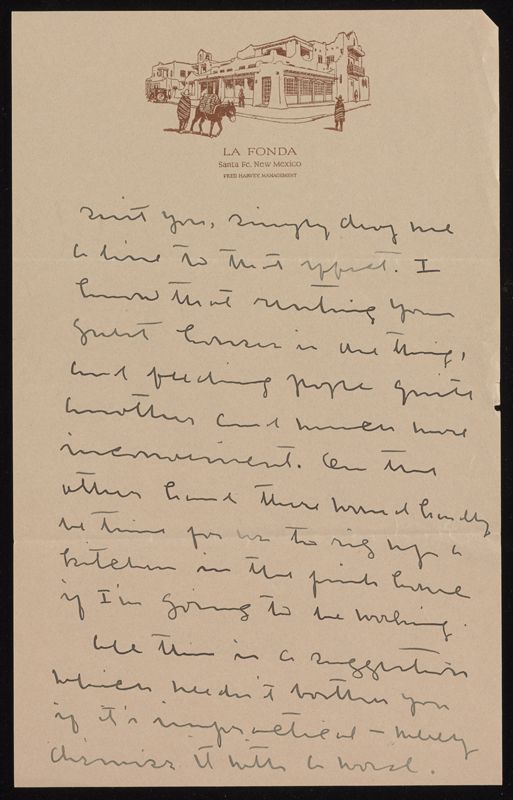 LA FONDA
Santa Fe, New Mexico
FRED HARVEY, MANAGEMENT
suit you, simply drop me
a line to that effect. I
know that renting your
guest houses is one thing,
and feeding people quite
another and much more
inconvenient. On the
other hand there would hardly
be time for us to rig up a
kitchen in the pink house
if I'm going to be working.
All this is a suggestion
which needn't bother you
if it's impractical – merely
dismiss it with a word.